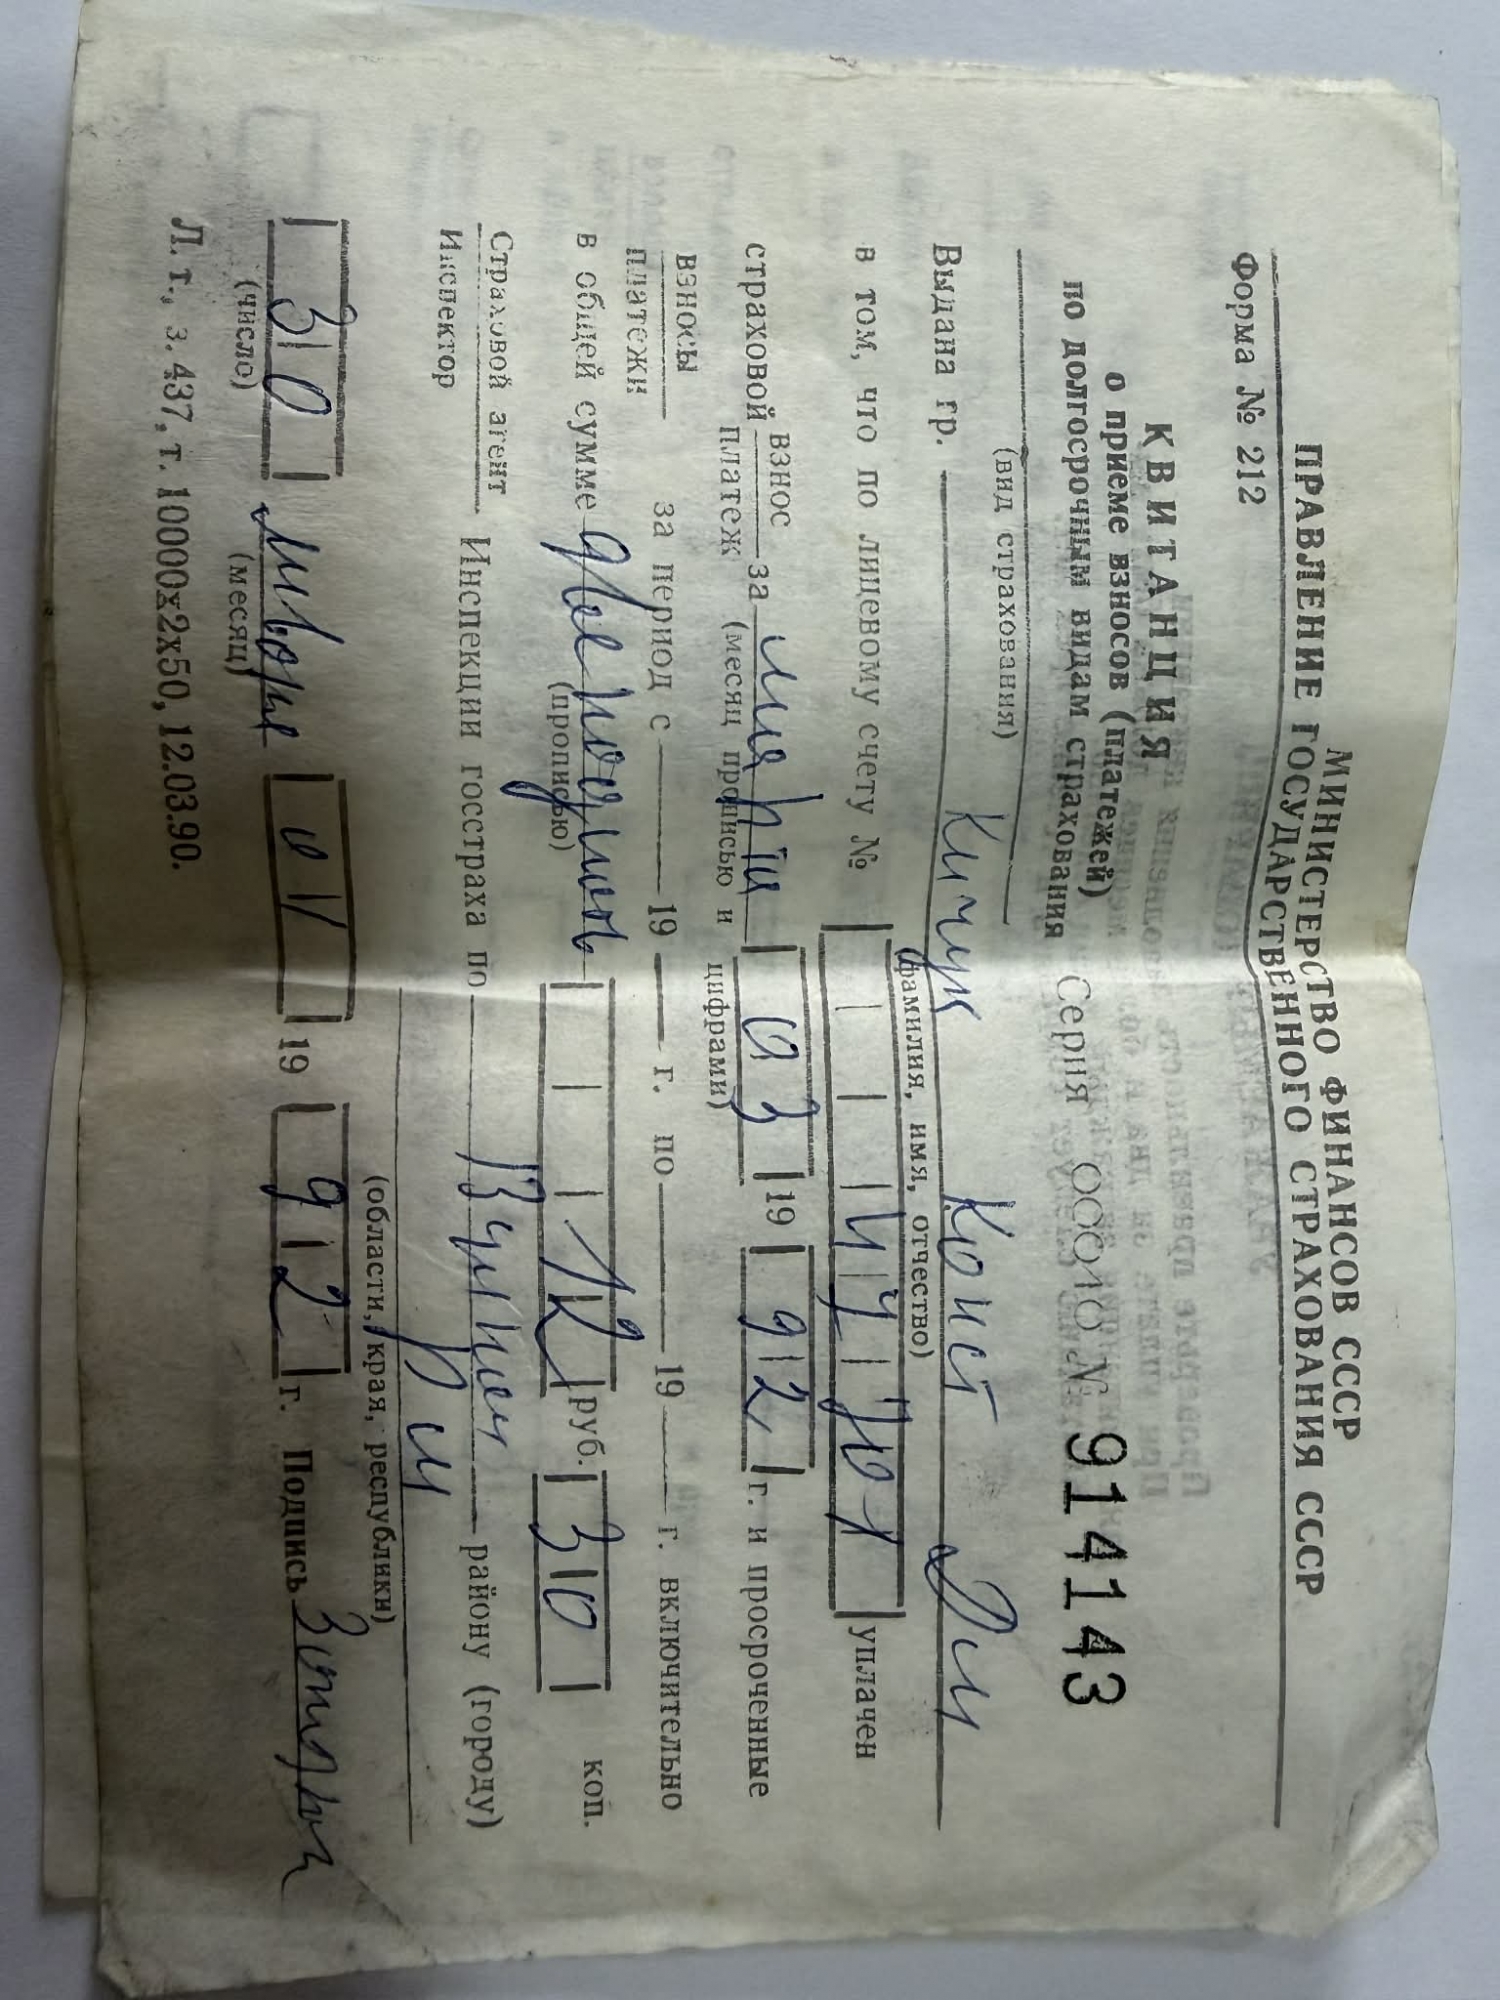 МИНИСТЕРСТВО ФИНАНСОВ СССР
ПРАВЛЕНИЕ ГОСУДАРСТВЕННОГО СТРАХОВАНИЯ СССР
Форма № 212
КВИТАНЦИЯ
о приеме взносов (платежей)
по долгосрочным видам страхования
Серия 00010 № 914143
(вид страхования)
Выдана гр. Кичук Конст
(фамилия, имя, отчество)
в том, что по лицевому счету № уплачен
страховой взнос за 03 19 92 г. и просроченные
платеж (месяц прописью и цифрами)
взносы
платежи за период с 19 г. по 19 г. включительно
в общей сумме руб. 30 коп.
(прописью)
Страховой агент
Инспектор Инспекции госстраха по району (городу)
(области, края, республики)
30 19 92 г. Подпись
(число) (месяц)
Л. т., з. 437, т. 10000х2х50, 12.03.90.